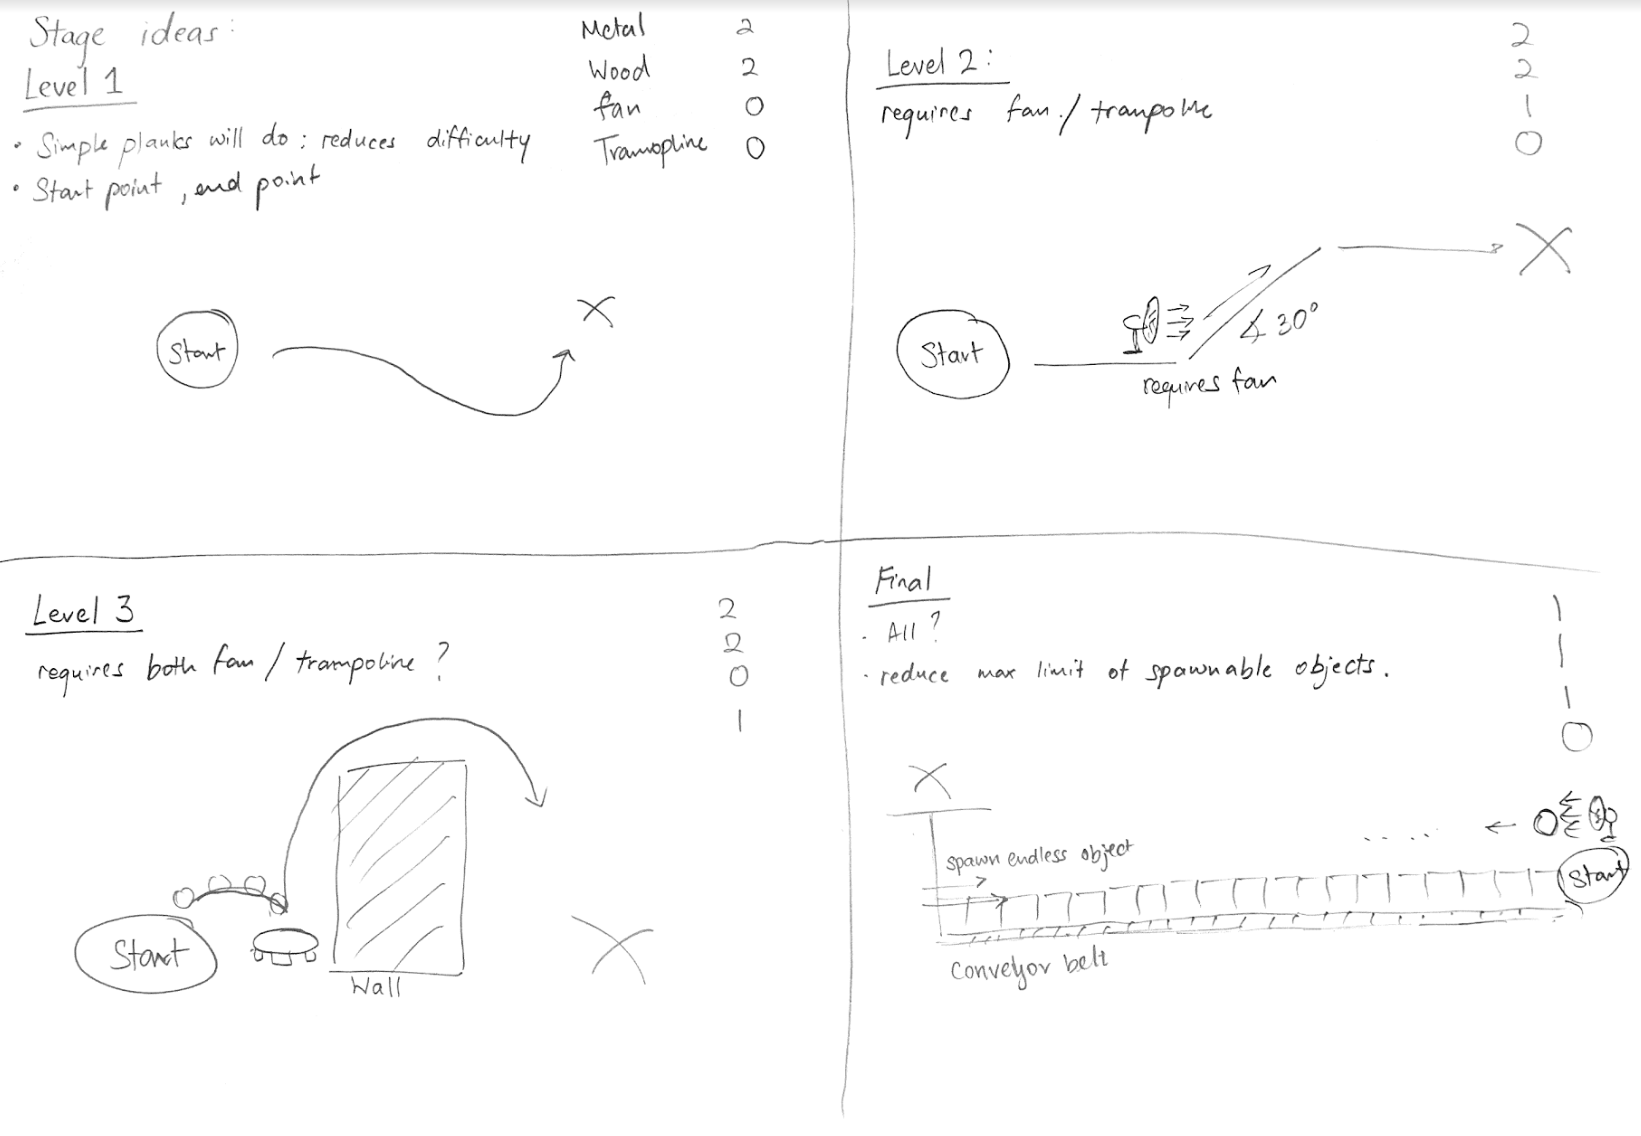 Stage ideas:
Level 1
• Simple planks will do : reduces difficulty
• Start point , end point
Metal 2
Wood 2
fan 0
Tramopline 0
Start
X
Level 2:
requires fan / trampoline
2
2
1
0
Start
∡ 30°
requires fan
X
Level 3
requires both fan / trampoline ?
2
2
0
1
Start
Wall
X
Final
· All ?
· reduce max limit of spawnable objects.
1
1
1
0
X
spawn endless object
Start
Conveyor belt